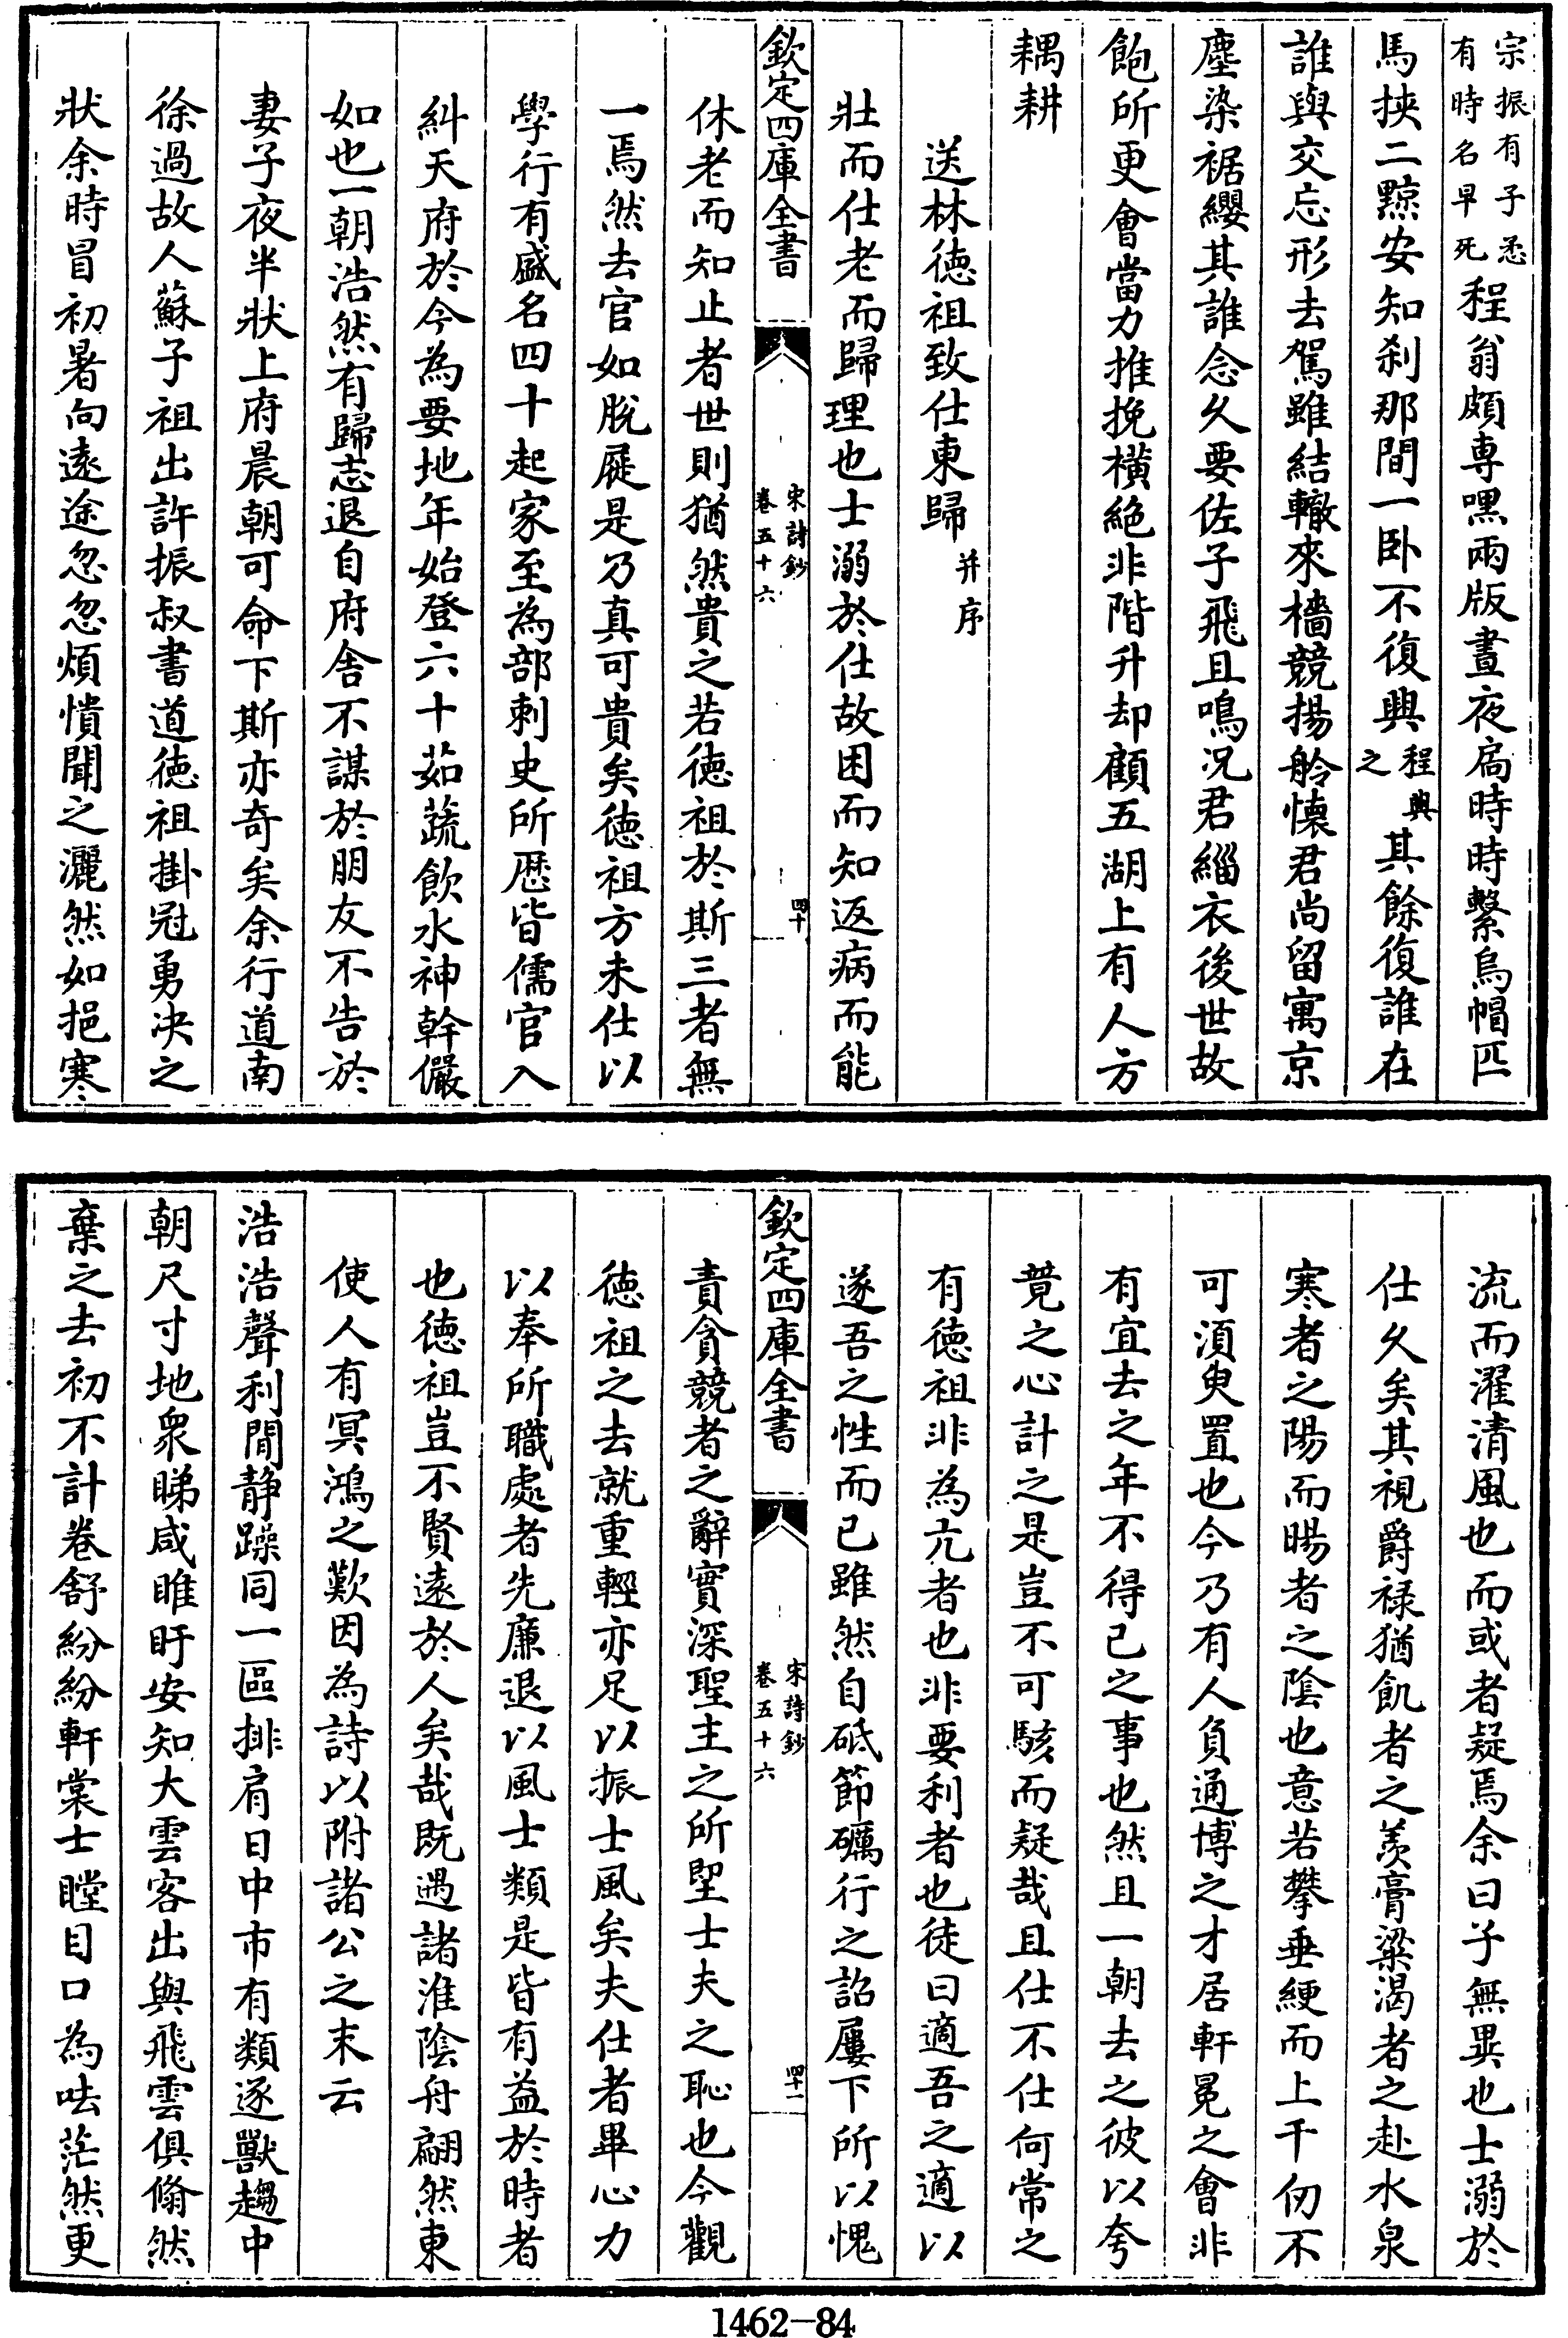 宗振有子悉有時名早死程翁頗専嘿兩版晝夜扃時時繫烏帽匹
馬挾二黥安知刹那間一卧不復興程興之其餘復誰在
誰與交忘形去駕雖結轍來檣競揚舲懷君尚留寓京
塵染裾纓其誰念久要佐子飛且鳴況君緇衣後世故
飽所更會當力推挽橫絶非階升却顧五湖上有人方
耦耕
送林徳祖致仕東歸并序
壯而仕老而歸理也士溺於仕故困而知返病而能
欽定四庫全書
宋詩鈔
卷五十六
四十
休老而知止者世則猶然貴之若徳祖於斯三者無
一焉然去官如脫屣是乃真可貴矣徳祖方未仕以
學行有盛名四十起家至為部刺史所歴皆儒官入
糾天府於今為要地年始登六十茹蔬飲水神幹儼
如也一朝浩然有歸志退自府舍不謀於朋友不告於
妻子夜半狀上府晨朝可命下斯亦奇矣余行道南
徐過故人蘇子祖出許振叔書道徳祖掛冠勇决之
狀余時冒初暑向遠途忽忽煩憒聞之灑然如挹寒
流而濯清風也而或者疑焉余曰子無異也士溺於
仕久矣其視爵禄猶飢者之羨膏粱渴者之赴水泉
寒者之陽而暍者之陰也意若攀垂綆而上千仞不
可須臾置也今乃有人負通博之才居軒冕之會非
有宜去之年不得已之事也然且一朝去之彼以夸
竟之心計之是豈不可駭而疑哉且仕不仕何常之
有徳祖非為亢者也非要利者也徒曰適吾之適以
遂吾之性而已雖然自砥節礪行之詔屢下所以愧
欽定四庫全書
宋詩鈔
卷五十六
四十一
責貪競者之辭實深聖主之所朢士夫之恥也今觀
徳祖之去就重輕亦足以振士風矣夫仕者畢心力
以奉所職處者先廉退以風士類是皆有益於時者
也徳祖豈不賢遠於人矣哉既遇諸淮陰舟翩然東
使人有冥鴻之歎因為詩以附諸公之末云
浩浩聲利閙静躁同一區排肩日中市有類逐獸趨中
朝尺寸地衆睇咸睢盱安知大雲客出與飛雲俱翛然
棄之去初不計卷舒紛紛軒裳士瞠目口為呿茫然更
1462-84